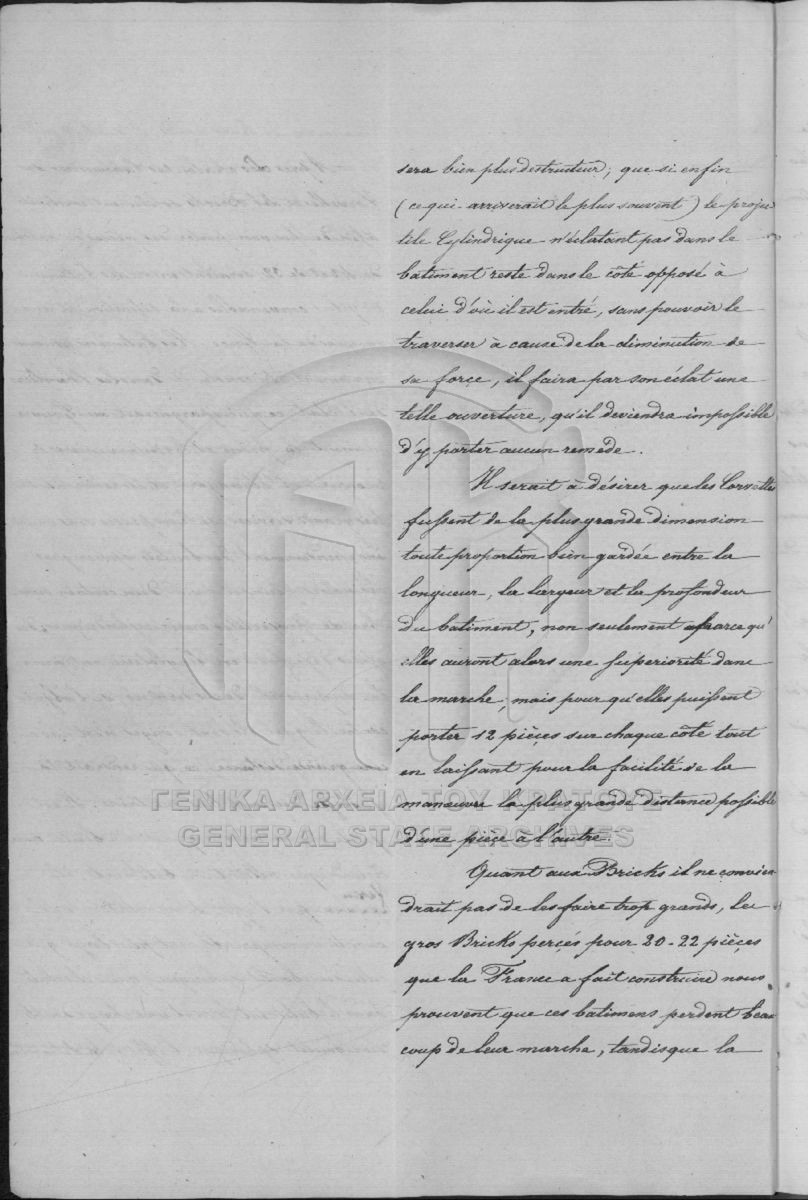 sera bien plus destructeur; que si enfin
(ce qui arriverait le plus souvent) le projec
tile Cylindrique n'éclatant pas dans le
batiment reste dans le côté opposé à
celui d'où il est entré, sans pouvoir le
traverser à cause de la diminution de
sa force, il faira par son éclat une
telle ouverture, qu'il deviendra impossible
d'y porter aucun remede.
Il serait à désirer que les Corvettes
fussent de la plus grande dimension
toute proportion bien gardée entre la
longueur, la largeur et la profondeur
du batiment, non seulement parce qu'
elles auront alors une superiorité dans
la marche, mais pour qu'elles puissent
porter 12 pièces sur chaque côté tout
en laissant pour la facilité de la
maneuver la plus grande distance possible
d'une pièce à l'autre
ΓΕΝΙΚΑ ΑΡΧΕΙΑ ΤΟΥ ΚΡΑΤΟΥΣ
GENERAL STATE ARCHIVES
Quant aux Bricks il ne convien
drait pas de les faire trop grands, les
gros Bricks percés pour 20-22 pièces
que la France a fait construire nous
prouvent que ces batimens perdent beau
coup de leur marche, tandisque la